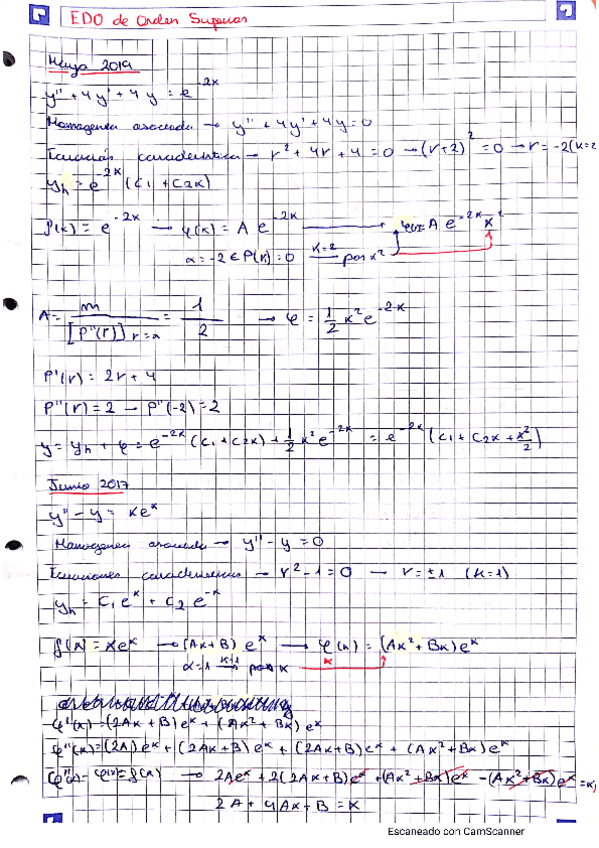 EDO de Orden Superior
Mayo 2019
y'' + 4y' + 4y = e^-2x
Homogenea asociada → y'' + 4y' + 4y = 0
Ecuación característica → r² + 4r + 4 = 0 → (r+2)² = 0 → r = -2 (k=2
yh = e^-2x (C1 + C2x)
f(x) = e^-2x → φ(x) = A e^-2x → φ(x) = A e^-2x x²
α = -2 ∈ P(r) = 0 k=2 → por x²
A = m / [P''(r)] r=α = 1/2 → φ = 1/2 x² e^-2x
P'(r) = 2r + 4
P''(r) = 2 → P''(-2) = 2
y = yh + φ = e^-2x (C1 + C2x) + 1/2 x² e^-2x = e^-2x (C1 + C2x + x²/2)
Junio 2017
y'' - y = xe^x
Homogenea asociada → y'' - y = 0
Ecuaciones características → r² - 1 = 0 → r = ±1 (k=1)
yh = C1 e^x + C2 e^-x
f(x) = xe^x → (Ax+B) e^x → φ(x) = (Ax² + Bx) e^x
α = 1 k=1 → por x
φ'(x) = (2Ax + B) e^x + (Ax² + Bx) e^x
φ''(x) = (2A) e^x + (2Ax + B) e^x + (2Ax + B) e^x + (Ax² + Bx) e^x
φ''(x) - φ(x) = f(x) → 2Ae^x + 2(2Ax + B) e^x + (Ax² + Bx) e^x - (Ax² + Bx) e^x = x
2A + 4Ax + B = x
Escaneado con CamScanner